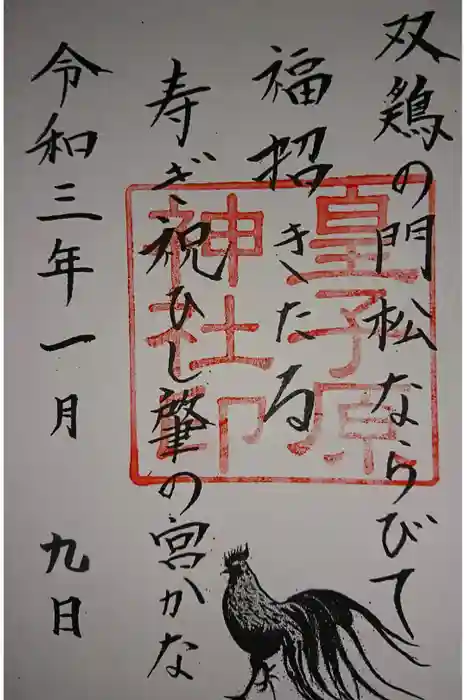 双鶏の門松ならびて
福招きたる
寿ぎ祝ひし肇の宮かな
令和三年一月九日
皇子原
神社印